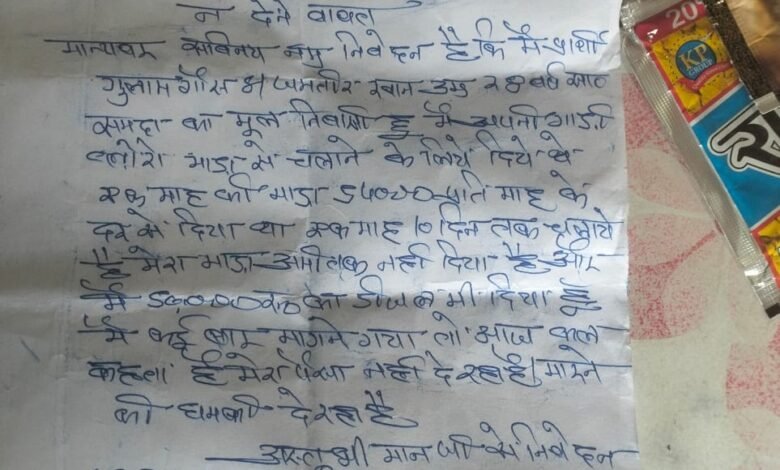 न देने बावत
मान्यवर सविनय नम्र निवेदन है कि मै प्रार्थी
गुलाम गौस S/o जमतीर खान उम्र 28 वर्ष साठ
समदा का मूल निवासी हूँ मै अपनी गाडी
बलोरो भाडा से चलाने के लिये दिये थे
एक माह की भाडा 54000 प्रति माह के
दर से दिया था एक माह 10 दिन तक चलाये
है मेरा भाडा अभी तक नही दिया है और
मै का डीजल भी दिया हूँ
मै कई बार मागने गया तो आज कल
कहता है मेरा पैसा नही दे रहा है। मारने
की धमकी दे रहा है
अस्तु श्री मान जी से निवेदन
20
KP
GROUP